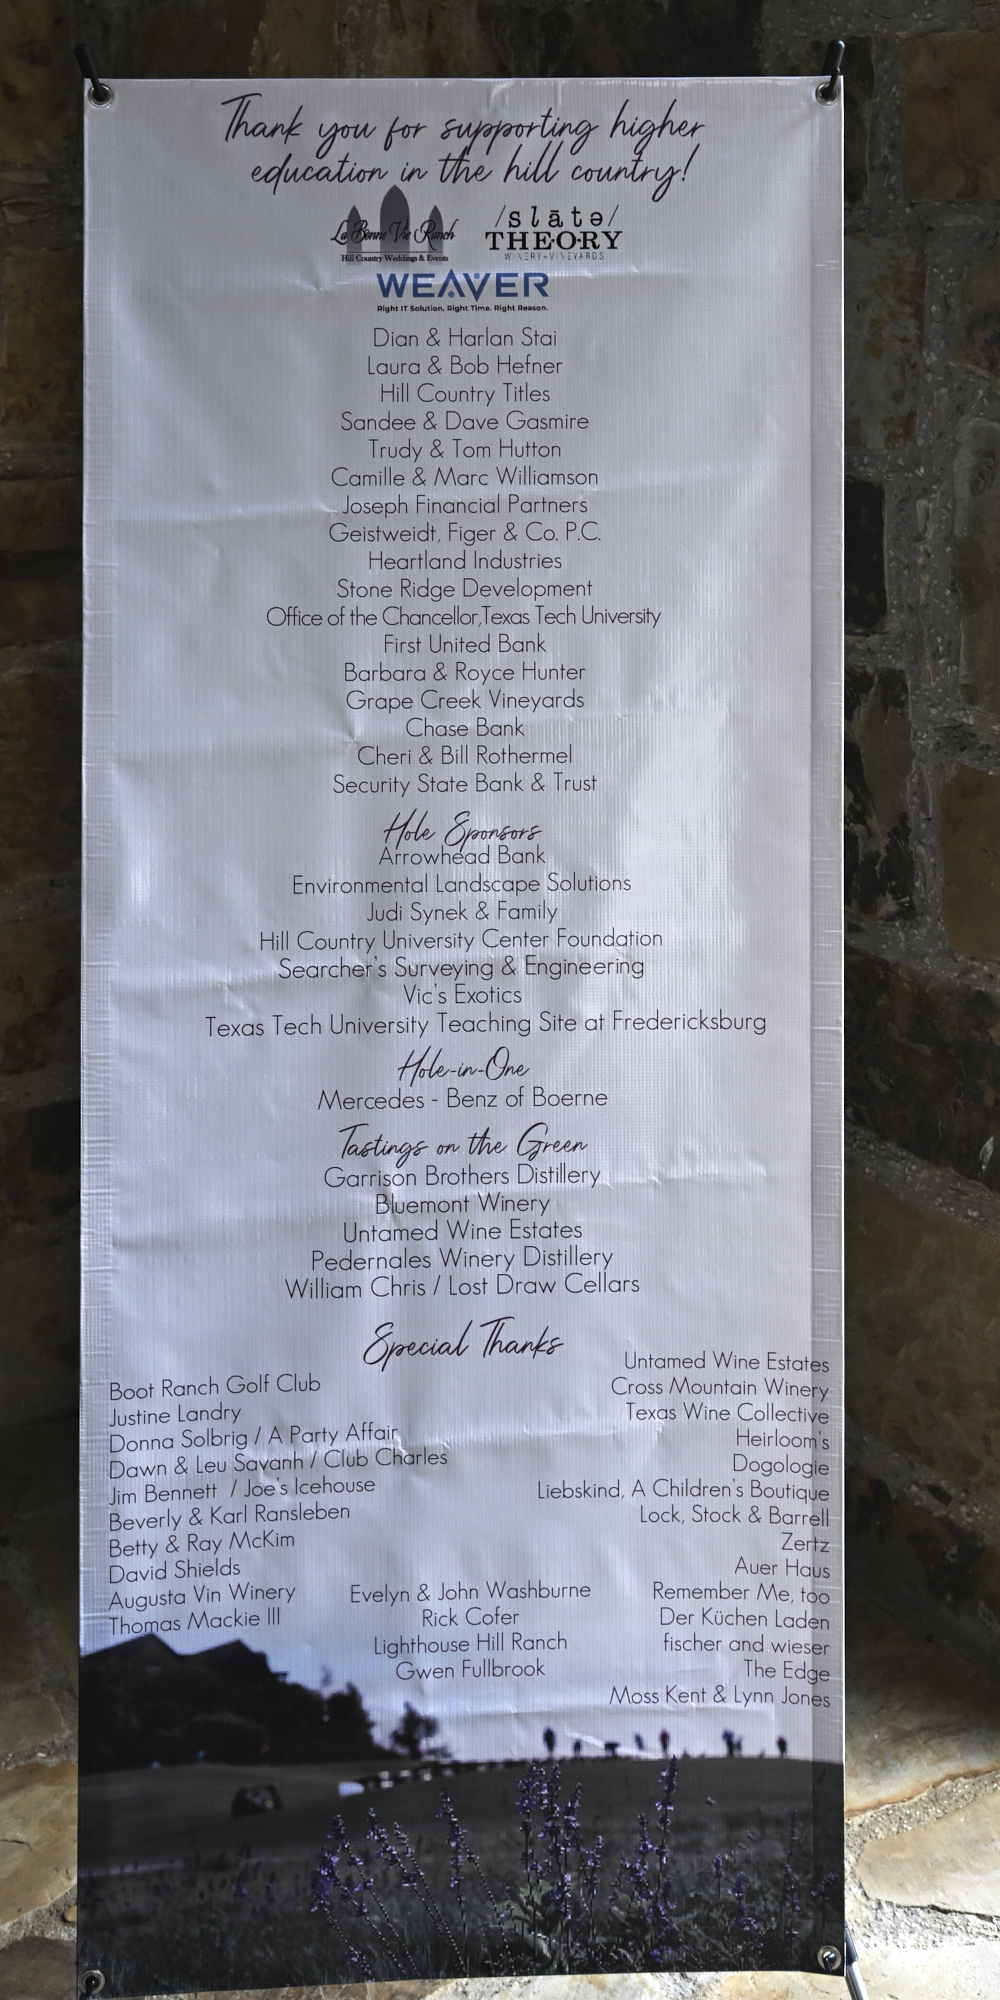 Thank you for supporting higher
education in the hill country!
La Bonne Vie Ranch
Hill Country Weddings & Events
/slātə/
THEORY
WINERY+VINEYARDS
WEAVER
Right IT Solution. Right Time. Right Reason.
Dian & Harlan Stai
Laura & Bob Hefner
Hill Country Titles
Sandee & Dave Gasmire
Trudy & Tom Hutton
Camille & Marc Williamson
Joseph Financial Partners
Geistweidt, Figer & Co. P.C.
Heartland Industries
Stone Ridge Development
Office of the Chancellor,Texas Tech University
First United Bank
Barbara & Royce Hunter
Grape Creek Vineyards
Chase Bank
Cheri & Bill Rothermel
Security State Bank & Trust
Hole Sponsors
Arrowhead Bank
Environmental Landscape Solutions
Judi Synek & Family
Hill Country University Center Foundation
Searcher's Surveying & Engineering
Vic's Exotics
Texas Tech University Teaching Site at Fredericksburg
Hole-in-One
Mercedes - Benz of Boerne
Tastings on the Green
Garrison Brothers Distillery
Bluemont Winery
Untamed Wine Estates
Pedernales Winery Distillery
William Chris / Lost Draw Cellars
Special Thanks
Boot Ranch Golf Club
Justine Landry
Donna Solbrig / A Party Affair
Dawn & Leu Savanh / Club Charles
Jim Bennett / Joe's Icehouse
Beverly & Karl Ransleben
Betty & Ray McKim
David Shields
Augusta Vin Winery
Thomas Mackie III
Evelyn & John Washburne
Rick Cofer
Lighthouse Hill Ranch
Gwen Fullbrook
Untamed Wine Estates
Cross Mountain Winery
Texas Wine Collective
Heirloom's
Dogologie
Liebskind, A Children's Boutique
Lock, Stock & Barrell
Zertz
Auer Haus
Remember Me, too
Der Küchen Laden
fischer and wieser
The Edge
Moss Kent & Lynn Jones